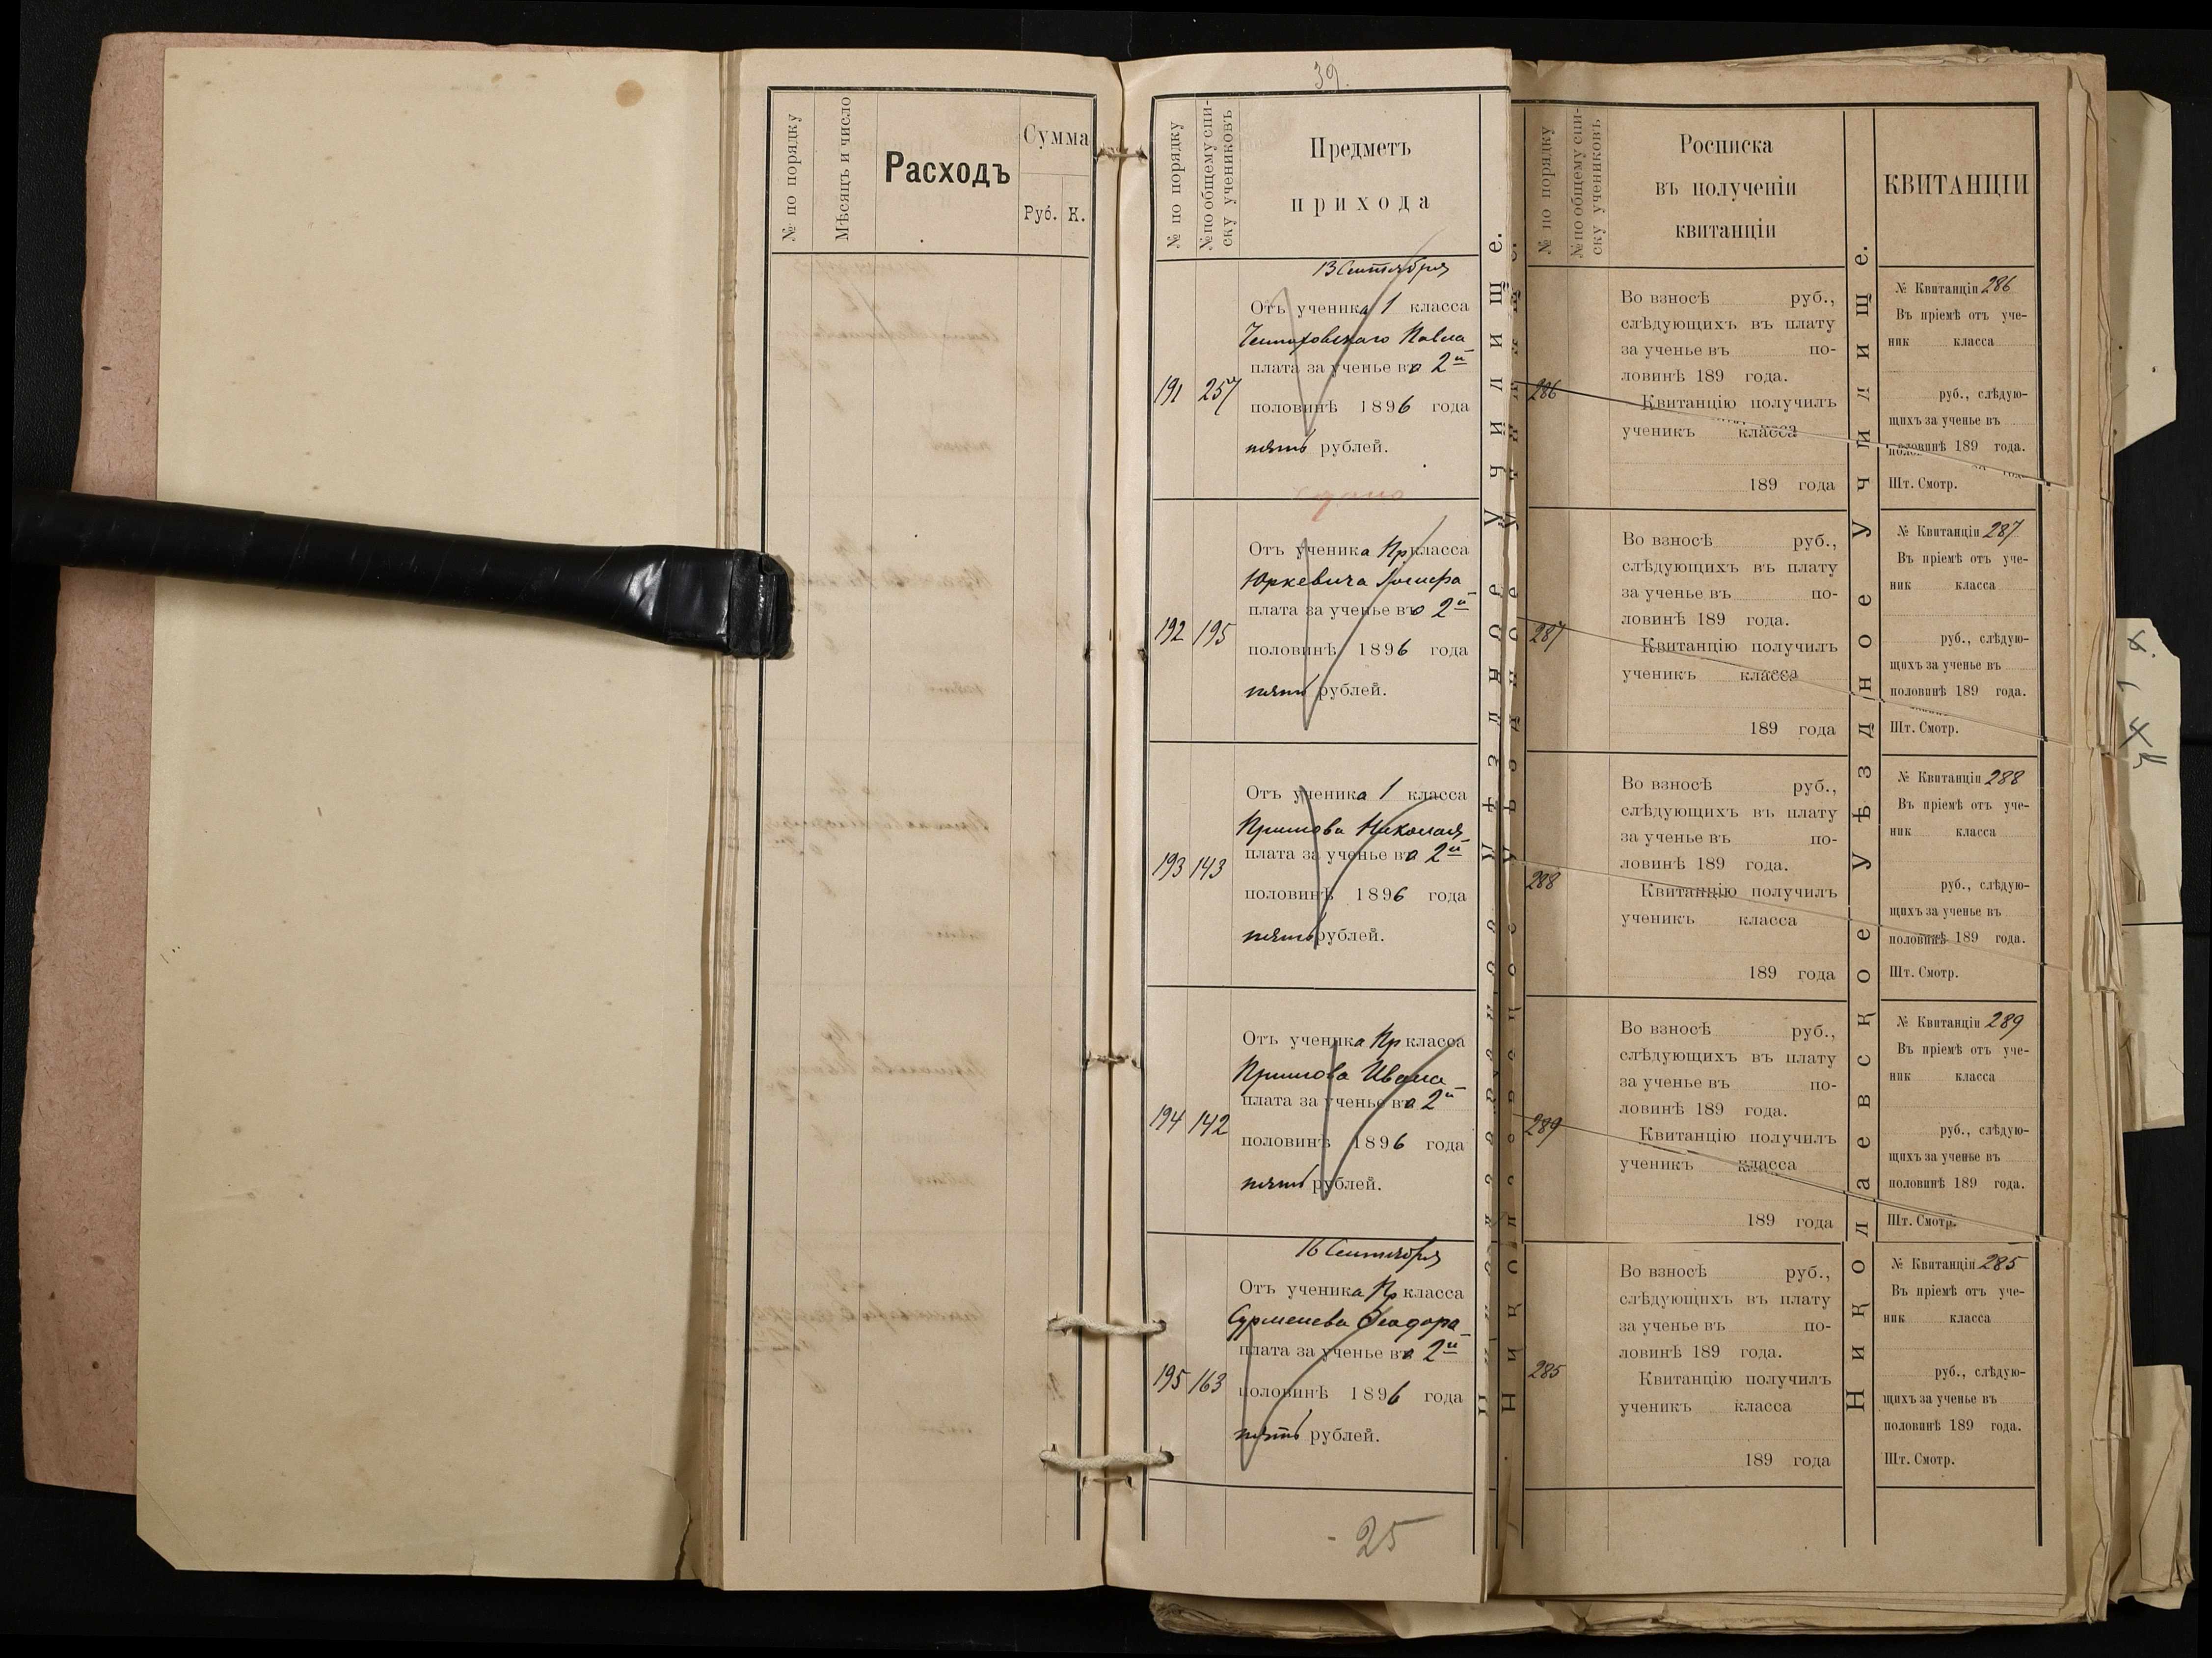 № по порядку
Мѣсяцъ и число
Расходъ
Сумма
Руб. К.
39.
№ по порядку
№ по общему спи-
ску учениковъ
Предметъ
прихода
13 Сентября
Отъ ученика 1 класса
Павла
плата за ученье во 2й
191 257
половинѣ 1896 года
пять рублей.
Отъ ученика Пр класса
Юркевича Іосифа
плата за ученье во 2й
192 195
половинѣ 1896 года
пять рублей.
Отъ ученика 1 класса
Николая
плата за ученье во 2й
193 143
половинѣ 1896 года
пять рублей.
Отъ ученика Пр класса
Ивана
плата за ученье во 2й
194 142
половинѣ 1896 года
пять рублей.
16 Сентября
Отъ ученика Пр класса
Сурменева Ѳеодора
плата за ученье во 2й
195 163
половинѣ 1896 года
пять рублей.
25
№ по порядку
№ по общему спи-
ску учениковъ
Росписка
въ полученіи
квитанціи
286
Во взносѣ руб.,
слѣдующихъ въ плату
за ученье въ по-
ловинѣ 189 года.
Квитанцію получилъ
ученикъ класса
189 года
287
Во взносѣ руб.,
слѣдующихъ въ плату
за ученье въ по-
ловинѣ 189 года.
Квитанцію получилъ
ученикъ класса
189 года
288
Во взносѣ руб.,
слѣдующихъ въ плату
за ученье въ по-
ловинѣ 189 года.
Квитанцію получилъ
ученикъ класса
189 года
289
Во взносѣ руб.,
слѣдующихъ въ плату
за ученье въ по-
ловинѣ 189 года.
Квитанцію получилъ
ученикъ класса
189 года
285
Во взносѣ руб.,
слѣдующихъ въ плату
за ученье въ по-
ловинѣ 189 года.
Квитанцію получилъ
ученикъ класса
189 года
Николаевское Уѣздное Училище.
КВИТАНЦІИ
№ Квитанціи 286
Въ пріемѣ отъ уче-
ник класса
руб., слѣдую-
щихъ за ученье въ
половинѣ 189 года.
Шт. Смотр.
№ Квитанціи 287
Въ пріемѣ отъ уче-
ник класса
руб., слѣдую-
щихъ за ученье въ
половинѣ 189 года.
Шт. Смотр.
№ Квитанціи 288
Въ пріемѣ отъ уче-
ник класса
руб., слѣдую-
щихъ за ученье въ
половинѣ 189 года.
Шт. Смотр.
№ Квитанціи 289
Въ пріемѣ отъ уче-
ник класса
руб., слѣдую-
щихъ за ученье въ
половинѣ 189 года.
Шт. Смотр.
№ Квитанціи 285
Въ пріемѣ отъ уче-
ник класса
руб., слѣдую-
щихъ за ученье въ
половинѣ 189 года.
Шт. Смотр.